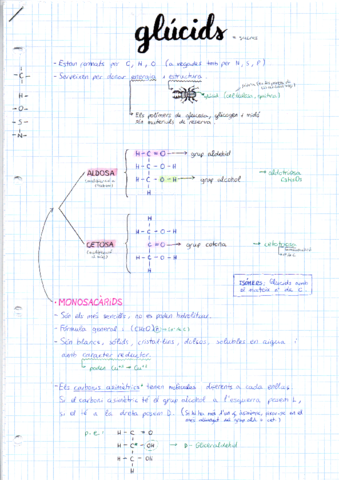 glúcids = sucres
- Estan formats per C, H, O (a vegades tmb per N, S, P)
- Serveixen per donar energia i estructura
(cel·lulosa, quitina)
Els polímers de glucosa, glucogen i midó
són materials de reserva.
- C -
H -
- O -
- S -
- N -
ALDOSA
H - C = O → grup aldehid
H - C - O - H
H - C - O - H → grup alcohol
H
aldotriosa
CETOSA
H
H - C - O - H
C = O → grup cetona
H - C - O - H
H
ISÒMERS: Glúcids amb
el mateix nº de C.
MONOSACÀRIDS
- Són els més senzills, no es poden hidrolitzar.
- Fórmula general: (CH₂O)n
- Són blancs, sòlids, cristal·lins, dolços, solubles en aigua i
amb caràcter reductor.
→ passen Cu²⁺ → Cu⁺
- Els carbonis asimètrics tenen molècules diferents a cada enllaç.
Si el carboni asimètric té el grup alcohol a l'esquerra posem L,
si el té a la dreta posem D.
p.e.
H - C = O
H - C* - OH → D-Gliceraldehid
H - C - OH
H